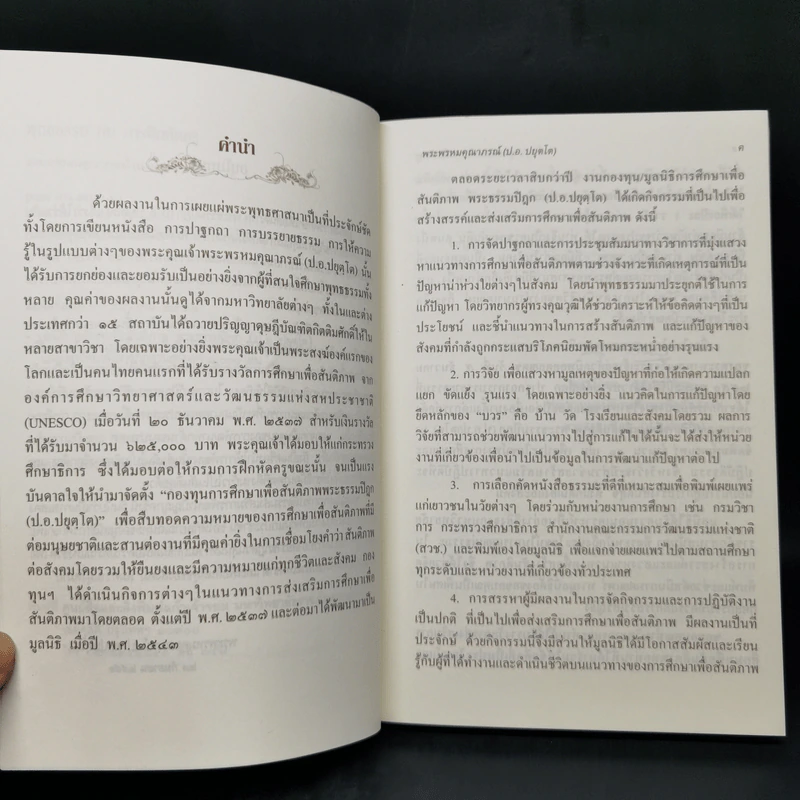 คำนำ
ด้วยผลงานในการเผยแผ่พระพุทธศาสนาเป็นที่ประจักษ์ชัด
ทั้งโดยการเขียนหนังสือ การปาฐกถา การบรรยายธรรม การให้ความ
รู้ในรูปแบบต่างๆของพระคุณเจ้าพระพรหมคุณาภรณ์ (ป.อ.ปยุตฺโต) นั้น
ได้รับการยกย่องและยอมรับเป็นอย่างยิ่งจากผู้ที่สนใจศึกษาพุทธธรรมทั้ง
หลาย คุณค่าของผลงานนั้นดูได้จากมหาวิทยาลัยต่างๆ ทั้งในและต่าง
ประเทศกว่า ๑๕ สถาบันได้ถวายปริญญาดุษฎีบัณฑิตกิตติมศักดิ์ให้ใน
หลายสาขาวิชา โดยเฉพาะอย่างยิ่งพระคุณเจ้าเป็นพระสงฆ์องค์แรกของ
โลกและเป็นคนไทยคนแรกที่ได้รับรางวัลการศึกษาเพื่อสันติภาพ จาก
องค์การศึกษาวิทยาศาสตร์และวัฒนธรรมแห่งสหประชาชาติ
(UNESCO) เมื่อวันที่ ๒๐ ธันวาคม พ.ศ. ๒๕๓๗ สำหรับเงินรางวัล
ที่ได้รับมาจำนวน ๖๒๕,๐๐๐ บาท พระคุณเจ้าได้มอบให้แก่กระทรวง
ศึกษาธิการ ซึ่งได้มอบต่อให้กรมการฝึกหัดครูขณะนั้น จนเป็นแรง
บันดาลใจให้นำมาจัดตั้ง “กองทุนการศึกษาเพื่อสันติภาพพระธรรมปิฎก
(ป.อ.ปยุตฺโต)” เพื่อสืบทอดความหมายของการศึกษาเพื่อสันติภาพที่มี
ต่อมนุษยชาติและสานต่องานที่มีคุณค่ายิ่งในการเชื่อมโยงคำว่าสันติภาพ
ต่อสังคมโดยรวมให้ยืนยงและมีความหมายแก่ทุกชีวิตและสังคม กอง
ทุนฯ ได้ดำเนินกิจการต่างๆในแนวทางการส่งเสริมการศึกษาเพื่อ
สันติภาพมาโดยตลอด ตั้งแต่ปี พ.ศ. ๒๕๓๗ และต่อมาได้พัฒนามาเป็น
มูลนิธิ เมื่อปี พ.ศ. ๒๕๔๓
พระพรหมคุณาภรณ์ (ป.อ. ปยุตฺโต)
ตลอดระยะเวลาสิบกว่าปี งานกองทุน/มูลนิธิการศึกษาเพื่อ
สันติภาพ พระธรรมปิฎก (ป.อ.ปยุตฺโต) ได้เกิดกิจกรรมที่เป็นไปเพื่อ
สร้างสรรค์และส่งเสริมการศึกษาเพื่อสันติภาพ ดังนี้
1. การจัดปาฐกถาและการประชุมสัมมนาทางวิชาการที่มุ่งแสวง
หาแนวทางการศึกษาเพื่อสันติภาพตามช่วงจังหวะที่เกิดเหตุการณ์ที่เป็น
ปัญหาน่าห่วงใยต่างๆในสังคม โดยนำพุทธธรรมมาประยุกต์ใช้ในการ
แก้ปัญหา โดยวิทยากรผู้ทรงคุณวุฒิได้ช่วยวิเคราะห์ให้ข้อคิดต่างๆที่เป็น
ประโยชน์ และชี้นำแนวทางในการสร้างสันติภาพ และแก้ปัญหาของ
สังคมที่กำลังถูกกระแสบริโภคนิยมพัดโหมกระหน่ำอย่างรุนแรง
2. การวิจัย เพื่อแสวงหามูลเหตุของปัญหาที่ก่อให้เกิดความแปลก
แยก ขัดแย้ง รุนแรง โดยเฉพาะอย่างยิ่ง แนวคิดในการแก้ปัญหาโดย
ยึดหลักของ “บวร” คือ บ้าน วัด โรงเรียนและสังคมโดยรวม ผลการ
วิจัยที่สามารถช่วยพัฒนาแนวทางไปสู่การแก้ไขได้นั้นจะได้ส่งให้หน่วย
งานที่เกี่ยวข้องเพื่อนำไปเป็นข้อมูลในการพัฒนาแก้ปัญหาต่อไป
3. การเลือกคัดหนังสือธรรมะที่ดีที่เหมาะสมเพื่อพิมพ์เผยแพร่
แก่เยาวชนในวัยต่างๆ โดยร่วมกับหน่วยงานการศึกษา เช่น กรมวิชา
การ กระทรวงศึกษาธิการ สำนักงานคณะกรรมการวัฒนธรรมแห่งชาติ
(สวช.) และพิมพ์เองโดยมูลนิธิ เพื่อแจกจ่ายเผยแพร่ไปตามสถานศึกษา
ทุกระดับและหน่วยงานที่เกี่ยวข้องทั่วประเทศ
4. การสรรหาผู้มีผลงานในการจัดกิจกรรมและการปฏิบัติงาน
เป็นปกติ ที่เป็นไปเพื่อส่งเสริมการศึกษาเพื่อสันติภาพ มีผลงานเป็นที่
ประจักษ์ ด้วยกิจกรรมนี้จึงมีส่วนให้มูลนิธิได้มีโอกาสสัมผัสและเรียน
รู้กับผู้ที่ได้ทำงานและดำเนินชีวิตบนแนวทางของการศึกษาเพื่อสันติภาพ